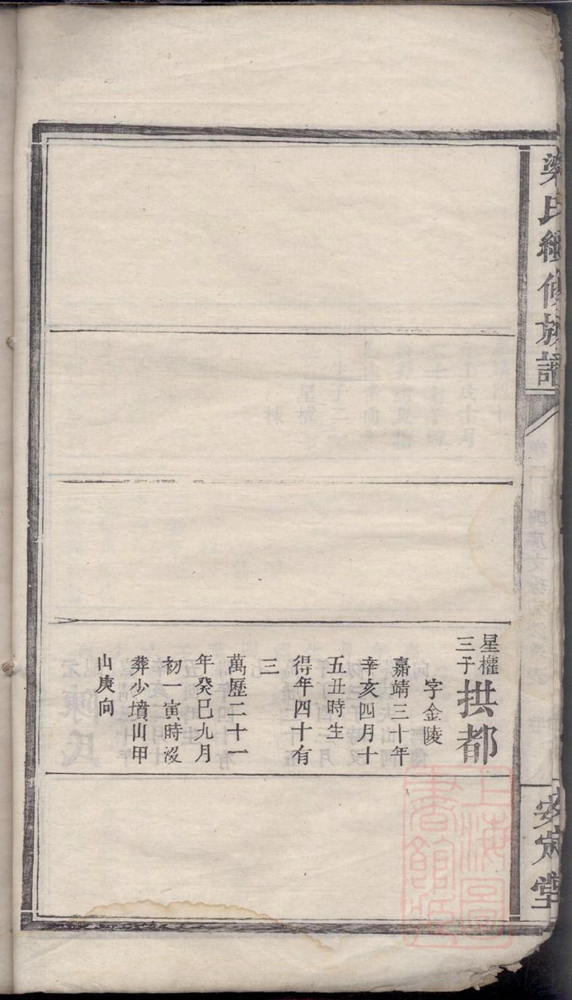 梁氏續修族譜
安定堂
星權
三子
拱都
字金陵
嘉靖三十年
辛亥四月十
五丑時生
得年四十有
三
萬歷二十一
年癸巳九月
初一寅時沒
葬少墳山甲
山庚向
上海圖
書館藏